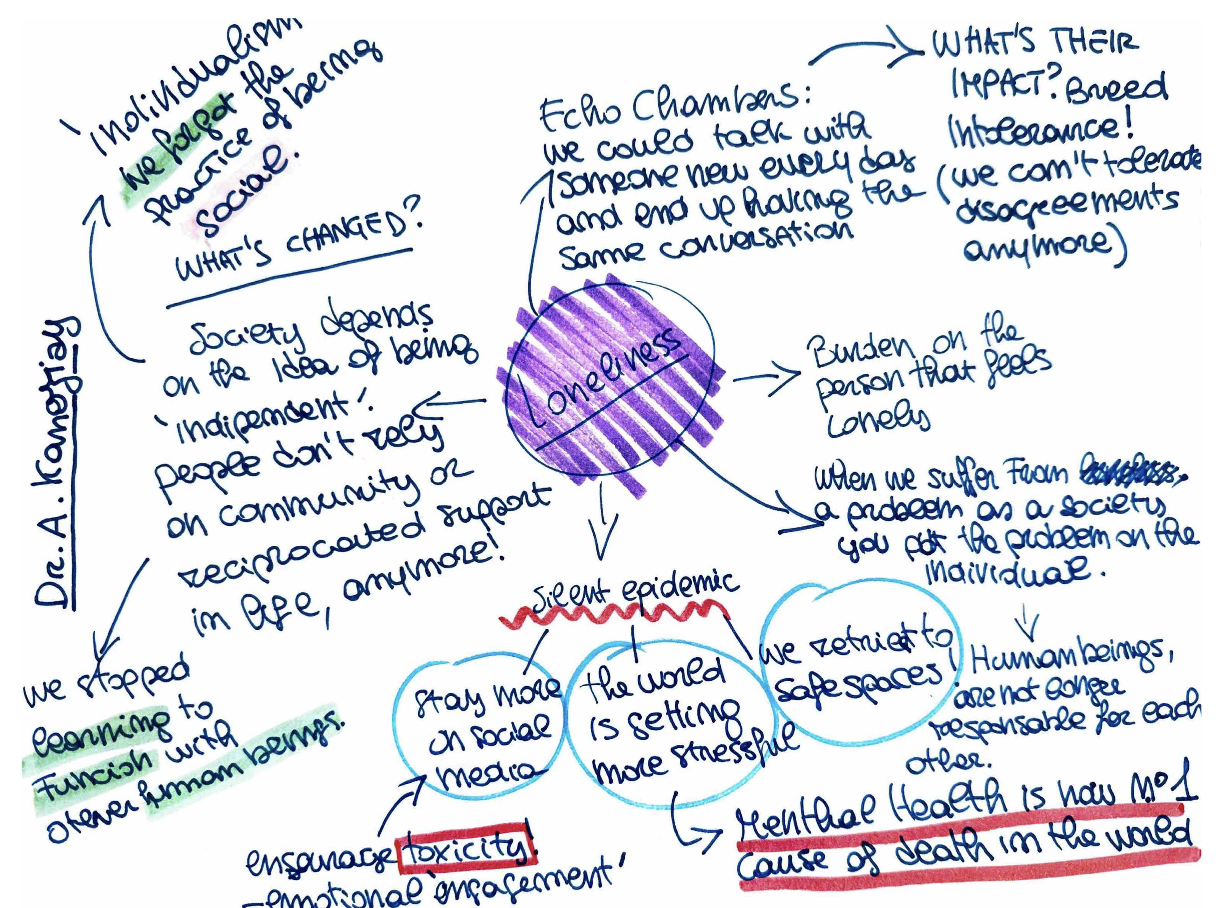 Dr. A. Kanojiay
'individualism
we forgot the
practice of being
social.
WHAT'S CHANGED?
Society depends
on the idea of being
'indipendent'.
people don't rely
on community or
reciprocated support
in life, anymore!
we stopped
learning to
funcion with
other human beings.
Echo Chambers:
we could talk with
someone new every day
and end up having the
same conversation
WHAT'S THEIR
IMPACT? Breed
intolerance!
(we can't tolerate
disagreements
anymore)
Loneliness
Burden on the
person that feels
lonely
when we suffer from
a problem as a society
you put the problem on the
individual.
Human beings,
are not longer
responsable for each
other.
silent epidemic
stay more
on social
media
the world
is getting
more stressful
we retriet to
safe spaces!
engourage toxicity!
- emotional 'engagement'
Menthal Health is now Nº1
cause of death in the world